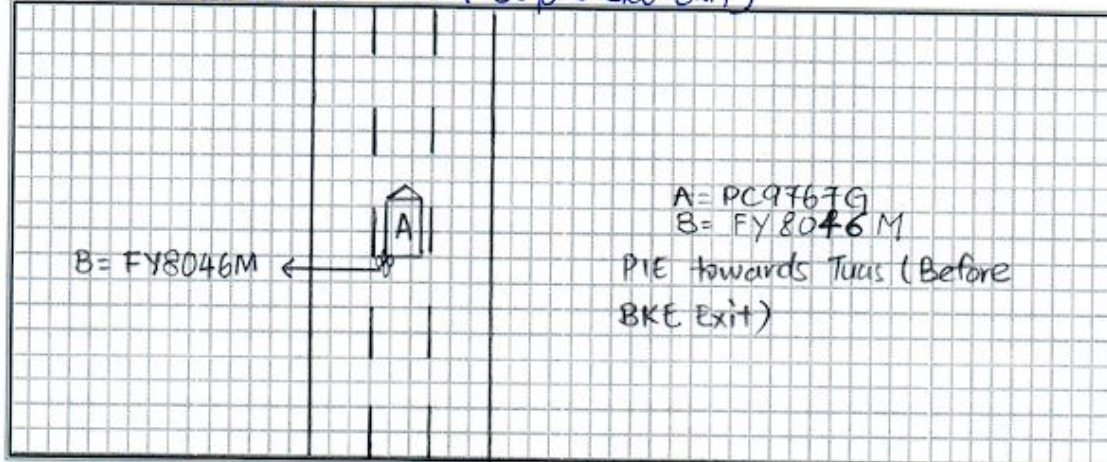 A
B= FY8046M
A= PC9767G
B= FY 8046 M
PIE towards Tuas (Before
BKE Exit)